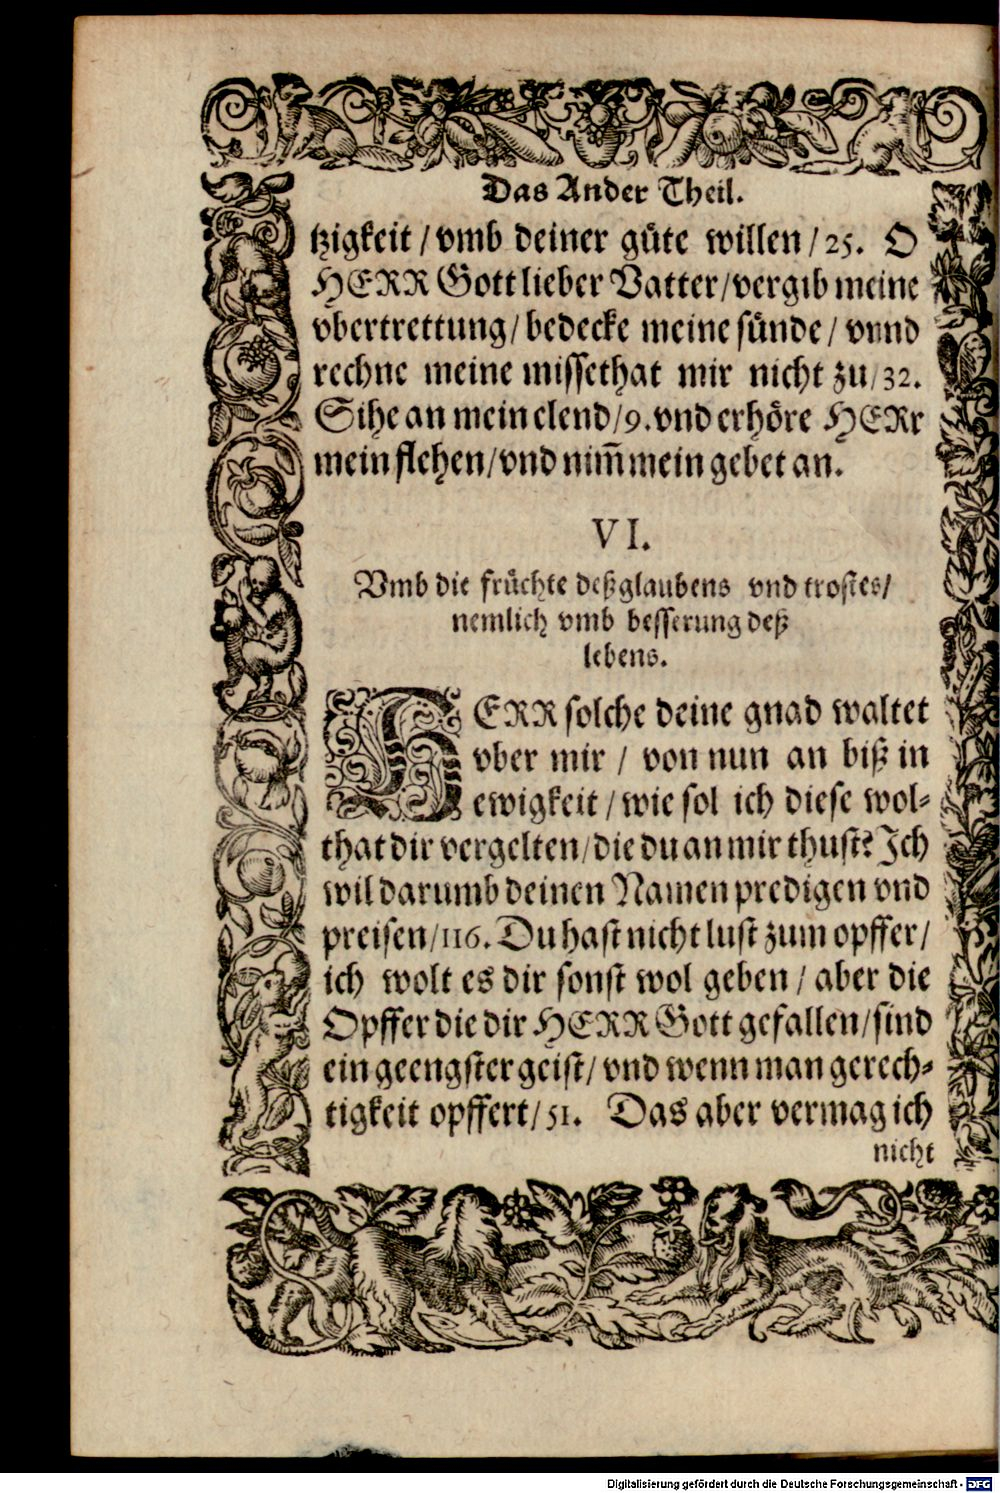 Das Ander Theil.
tzigkeit / vmb deiner güte willen / 25. O
HERR Gott lieber Vatter / vergib meine
vbertrettung / bedecke meine sünde / vnnd
rechne meine missethat mir nicht zu / 32.
Sihe an mein elend / 9. vnd erhöre HERr
mein flehen / vnd nim̃ mein gebet an.
VI.
Vmb die früchte deß glaubens vnd trostes /
nemlich vmb besserung deß
lebens.
HERR solche deine gnad waltet
vber mir / von nun an biß in
ewigkeit / wie sol ich diese wol-
that dir vergelten / die du an mir thust? Ich
wil darumb deinen Namen predigen vnd
preisen / 116. Du hast nicht lust zum opffer /
ich wolt es dir sonst wol geben / aber die
Opffer die dir HERR Gott gefallen / sind
ein geengster geist / vnd wenn man gerech-
tigkeit opffert / 51. Das aber vermag ich
nicht
Digitalisierung gefördert durch die Deutsche Forschungsgemeinschaft - DFG